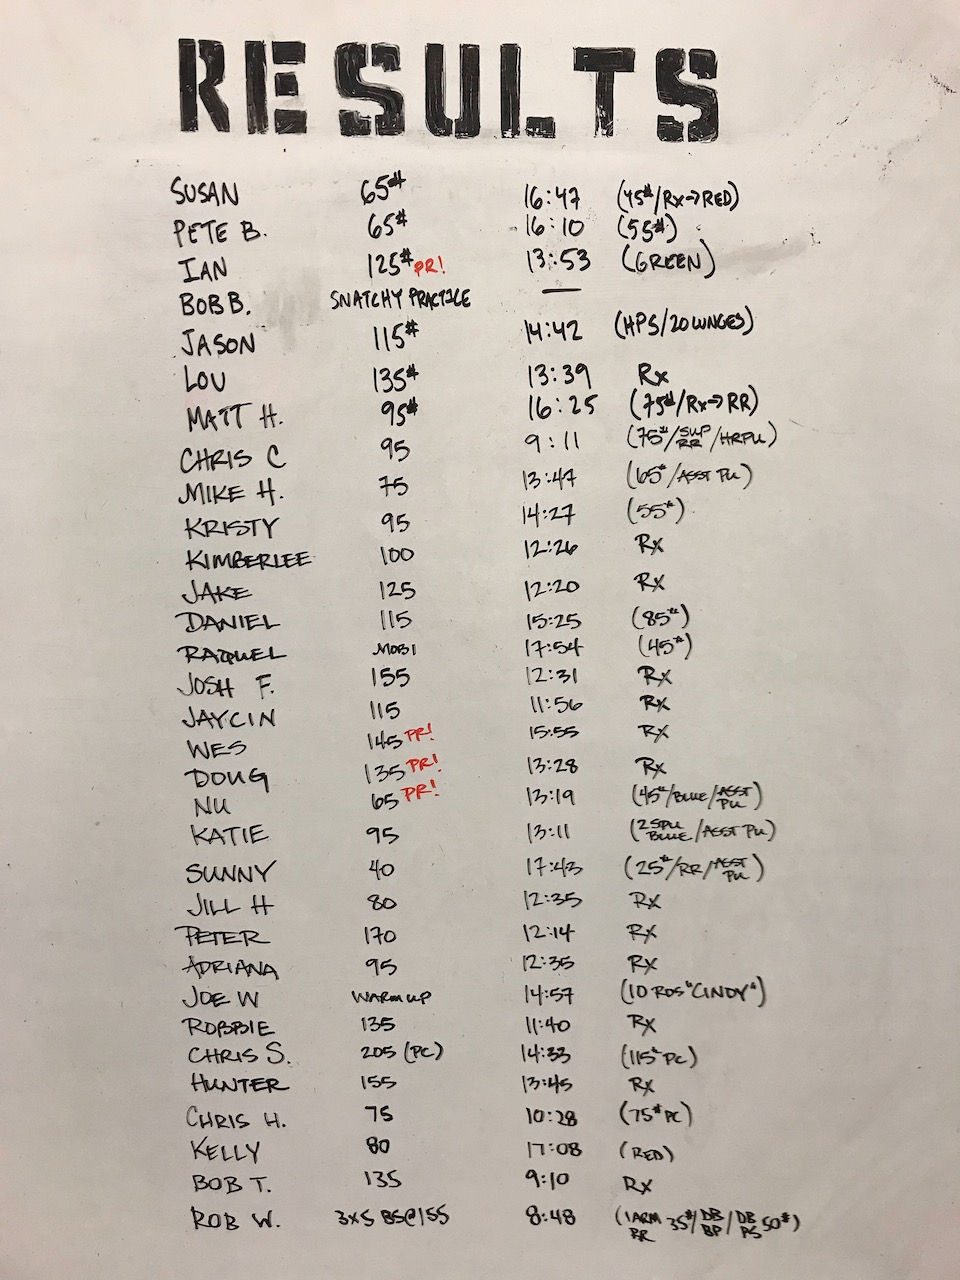 RESULTS
SUSAN 65# 16:47 (45#/RX→RED)
PETE B. 65# 16:10 (55#)
IAN 125# PR! 13:53 (GREEN)
BOB B. SNATCHY PRACTICE —
JASON 115# 14:42 (HPS/20 LUNGES)
LOU 135# 13:39 Rx
MATT H. 95# 16:25 (75#/Rx→RR)
CHRIS C 95 9:11 (75#/SUP RR/HRPU)
MIKE H. 75 13:47 (65#/ASST PU)
KRISTY 95 14:27 (55#)
KIMBERLEE 100 12:26 Rx
JAKE 125 12:20 Rx
DANIEL 115 15:25 (85#)
RAQUEL MOBI 17:54 (45#)
JOSH F. 155 12:31 Rx
JAYCIN 115 11:56 Rx
WES 145 PR! 15:55 Rx
DOUG 135 PR! 13:28 Rx
NU 65 PR! 13:19 (45#/BLUE/ASST PU)
KATIE 95 13:11 (25PU BLUE/ASST PU)
SUNNY 40 17:43 (25#/RR/ASST PU)
JILL H 80 12:35 Rx
PETER 170 12:14 Rx
ADRIANA 95 12:35 Rx
JOE W WARM UP 14:57 (10 RDS "CINDY")
ROBBIE 135 11:40 Rx
CHRIS S. 205 (PC) 14:33 (115# PC)
HUNTER 155 13:45 Rx
CHRIS H. 75 10:28 (75# PC)
KELLY 80 17:08 (RED)
BOB T. 135 9:10 Rx
ROB W. 3x5 BS@155 8:48 (1 ARM RR 35#/DB BP/DB PS 50#)